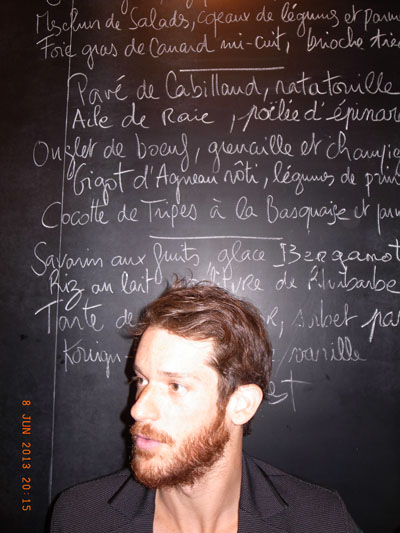 Mesclun de Salades, copeaux de légumes et parm
Foie gras de Canard mi-cuit, brioche tiè
Pavé de Cabillaud, ratatouille
Aile de Raie, poêlée d'épinard
Onglet de boeuf, grenaille et champi
Gigot d'Agneau rôti, légumes de prin
Cocotte de Tripes à la Basquaise et pom
Savarin aux fruits, glace Bergamot
Riz au lait de Rhubarbe
Tarte de sorbet
Kouign- vanille
8 JUN 2013 20:15